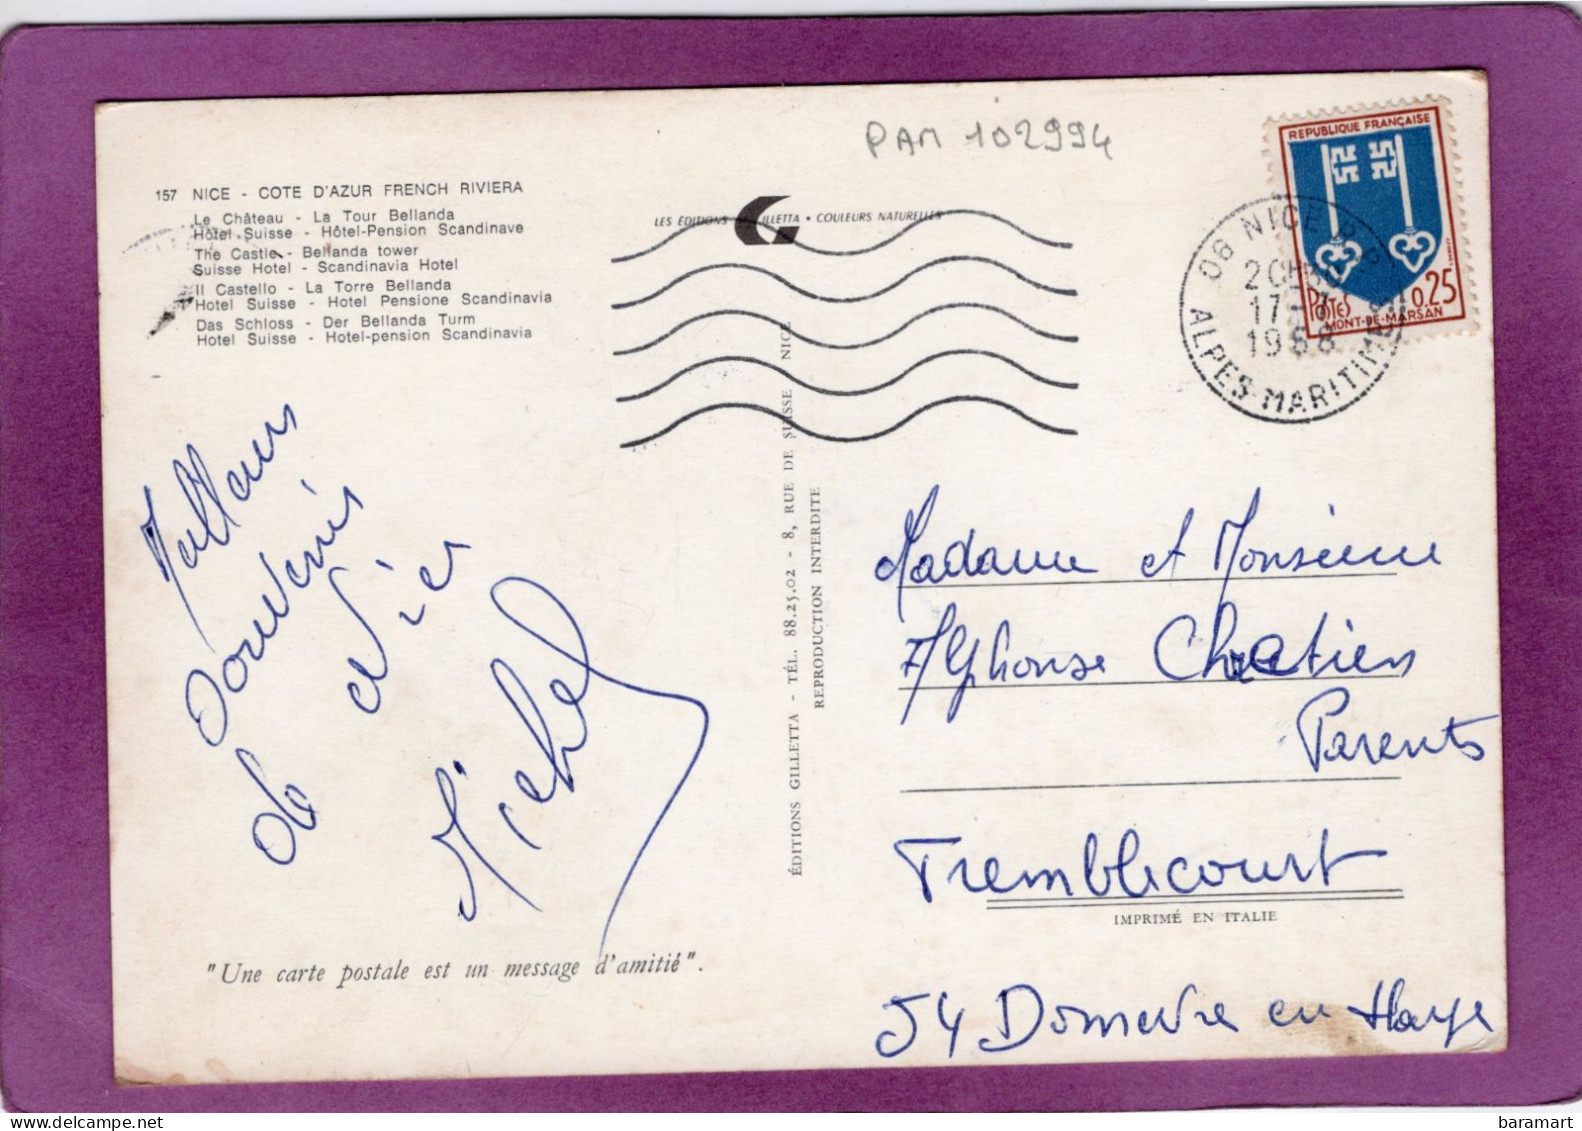 PAM 102994
157 NICE - COTE D'AZUR FRENCH RIVIERA
Le Château - La Tour Bellanda
Hôtel Suisse - Hôtel-Pension Scandinave
The Castle - Bellanda tower
Suisse Hotel - Scandinavia Hotel
Il Castello - La Torre Bellanda
Hotel Suisse - Hotel Pensione Scandinavia
Das Schloss - Der Bellanda Turm
Hotel Suisse - Hotel-pension Scandinavia
LES ÉDITIONS GILLETTA • COULEURS NATURELLES
REPUBLIQUE FRANÇAISE
POSTES 0.25
MONT-DE-MARSAN
06 NICE R.P.
20H30
17-7
1968
ALPES-MARITIMES
Meilleurs
souvenirs
de
Nice
Michel
ÉDITIONS GILLETTA - TÉL. 88.25.02 - 8, RUE DE SUISSE NICE
REPRODUCTION INTERDITE
Madame et Monsieur
Alphonse Chretien
Parents
Tremblecourt
IMPRIMÉ EN ITALIE
54 Domevre en Haye
"Une carte postale est un message d'amitié".
baramart